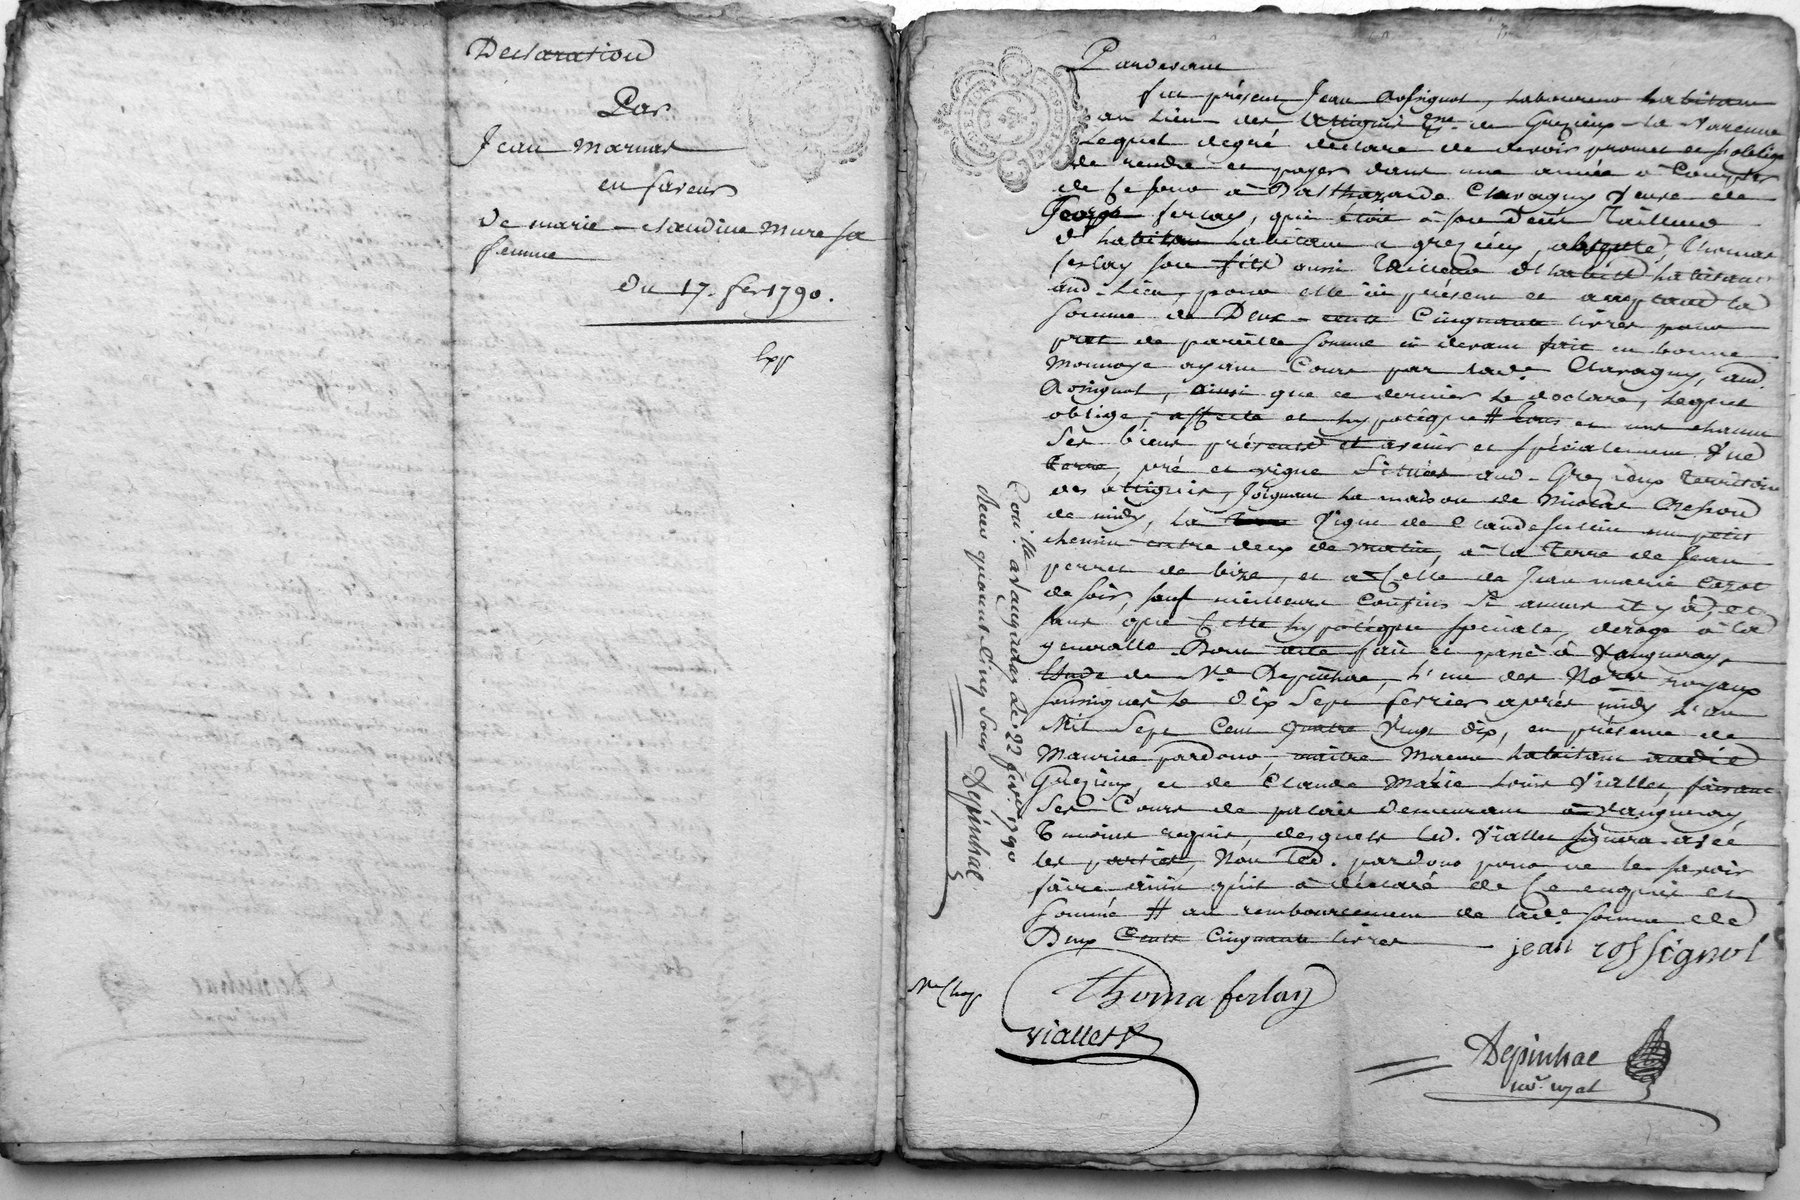 Declaration
Par
Jean Marnas
en faveur
de marie claudine Mure sa
femme
Du 17. fer 1790.
Exp
Pardevant
fut présent Jean Rossignol, laboureur habitant
au lieu des de Grezieu la Varenne
Lequel degré déclare de devoir promet et s'oblige
de rendre et payer dans une année à Compter
de ce jour à Balthazarde Claragny veuve de
George ferlay, qui étoit à son deceit Tailleur
d'habit habitant a grezieu, Thomas
ferlay son fils aussi Tailleur d'habits habitant
aud. Lieu, pour elle ici présent et acceptant la
somme de Deux cents Cinquante livres pour
pret de pareille somme ci devant fait en bonne
Monnoye ayant Cours par lade. Claragny, aud.
Rossignol, ainsi que ce dernier le déclare, Lequel
oblige, affecte et hypotèque # tous et uns chacun
Ses biens présents et avenir et spécialement Une
Terre, pré et vigne situés aud. Grezieux territoire
des, Joignant la maison de Nicolas
de midy, la vigne de Claude un petit
chemin entre deux de matin, à la Terre de Jean
perret de bize, et à Celle de Jean marie
de soir, sauf meilleurs Confins si aucuns il y à, et
sans que Cette hypotèque spéciale, deroge à la
generalle Dont acte fait et passé à Vaugneray,
Etude de Me. Depinhac, L'un des Nores royaux
soussignés le dix Sept fevrier après midy L'an
Mil Sept Cent Quatre Vingt dix, en présence de
Maurice pardons, maitre Macon habitant audit
Grezieux, et de Claude Marie Louis Viallet, faisant
Ses Cours de palais demeurant à Vaugneray,
Témoins requis, desquels led. Viallet signera avec
les parties, Non led. pardons pour ne le savoir
faire ainsi qu'il à déclaré de Ce enquis et
sommé # au remboursement de lade. somme de
Deux Cents Cinquante livres
jean rossignol
thoma ferlay
viallet
Depinhac
nore. royal
Conlle. à Vaugneray Le 22 fevr. 1790
Reçu quarante-Cinq Sous Depinhac